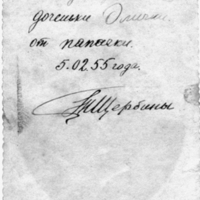 доченьки Эммы
от папочки.
5.02.55 года.
Щербины